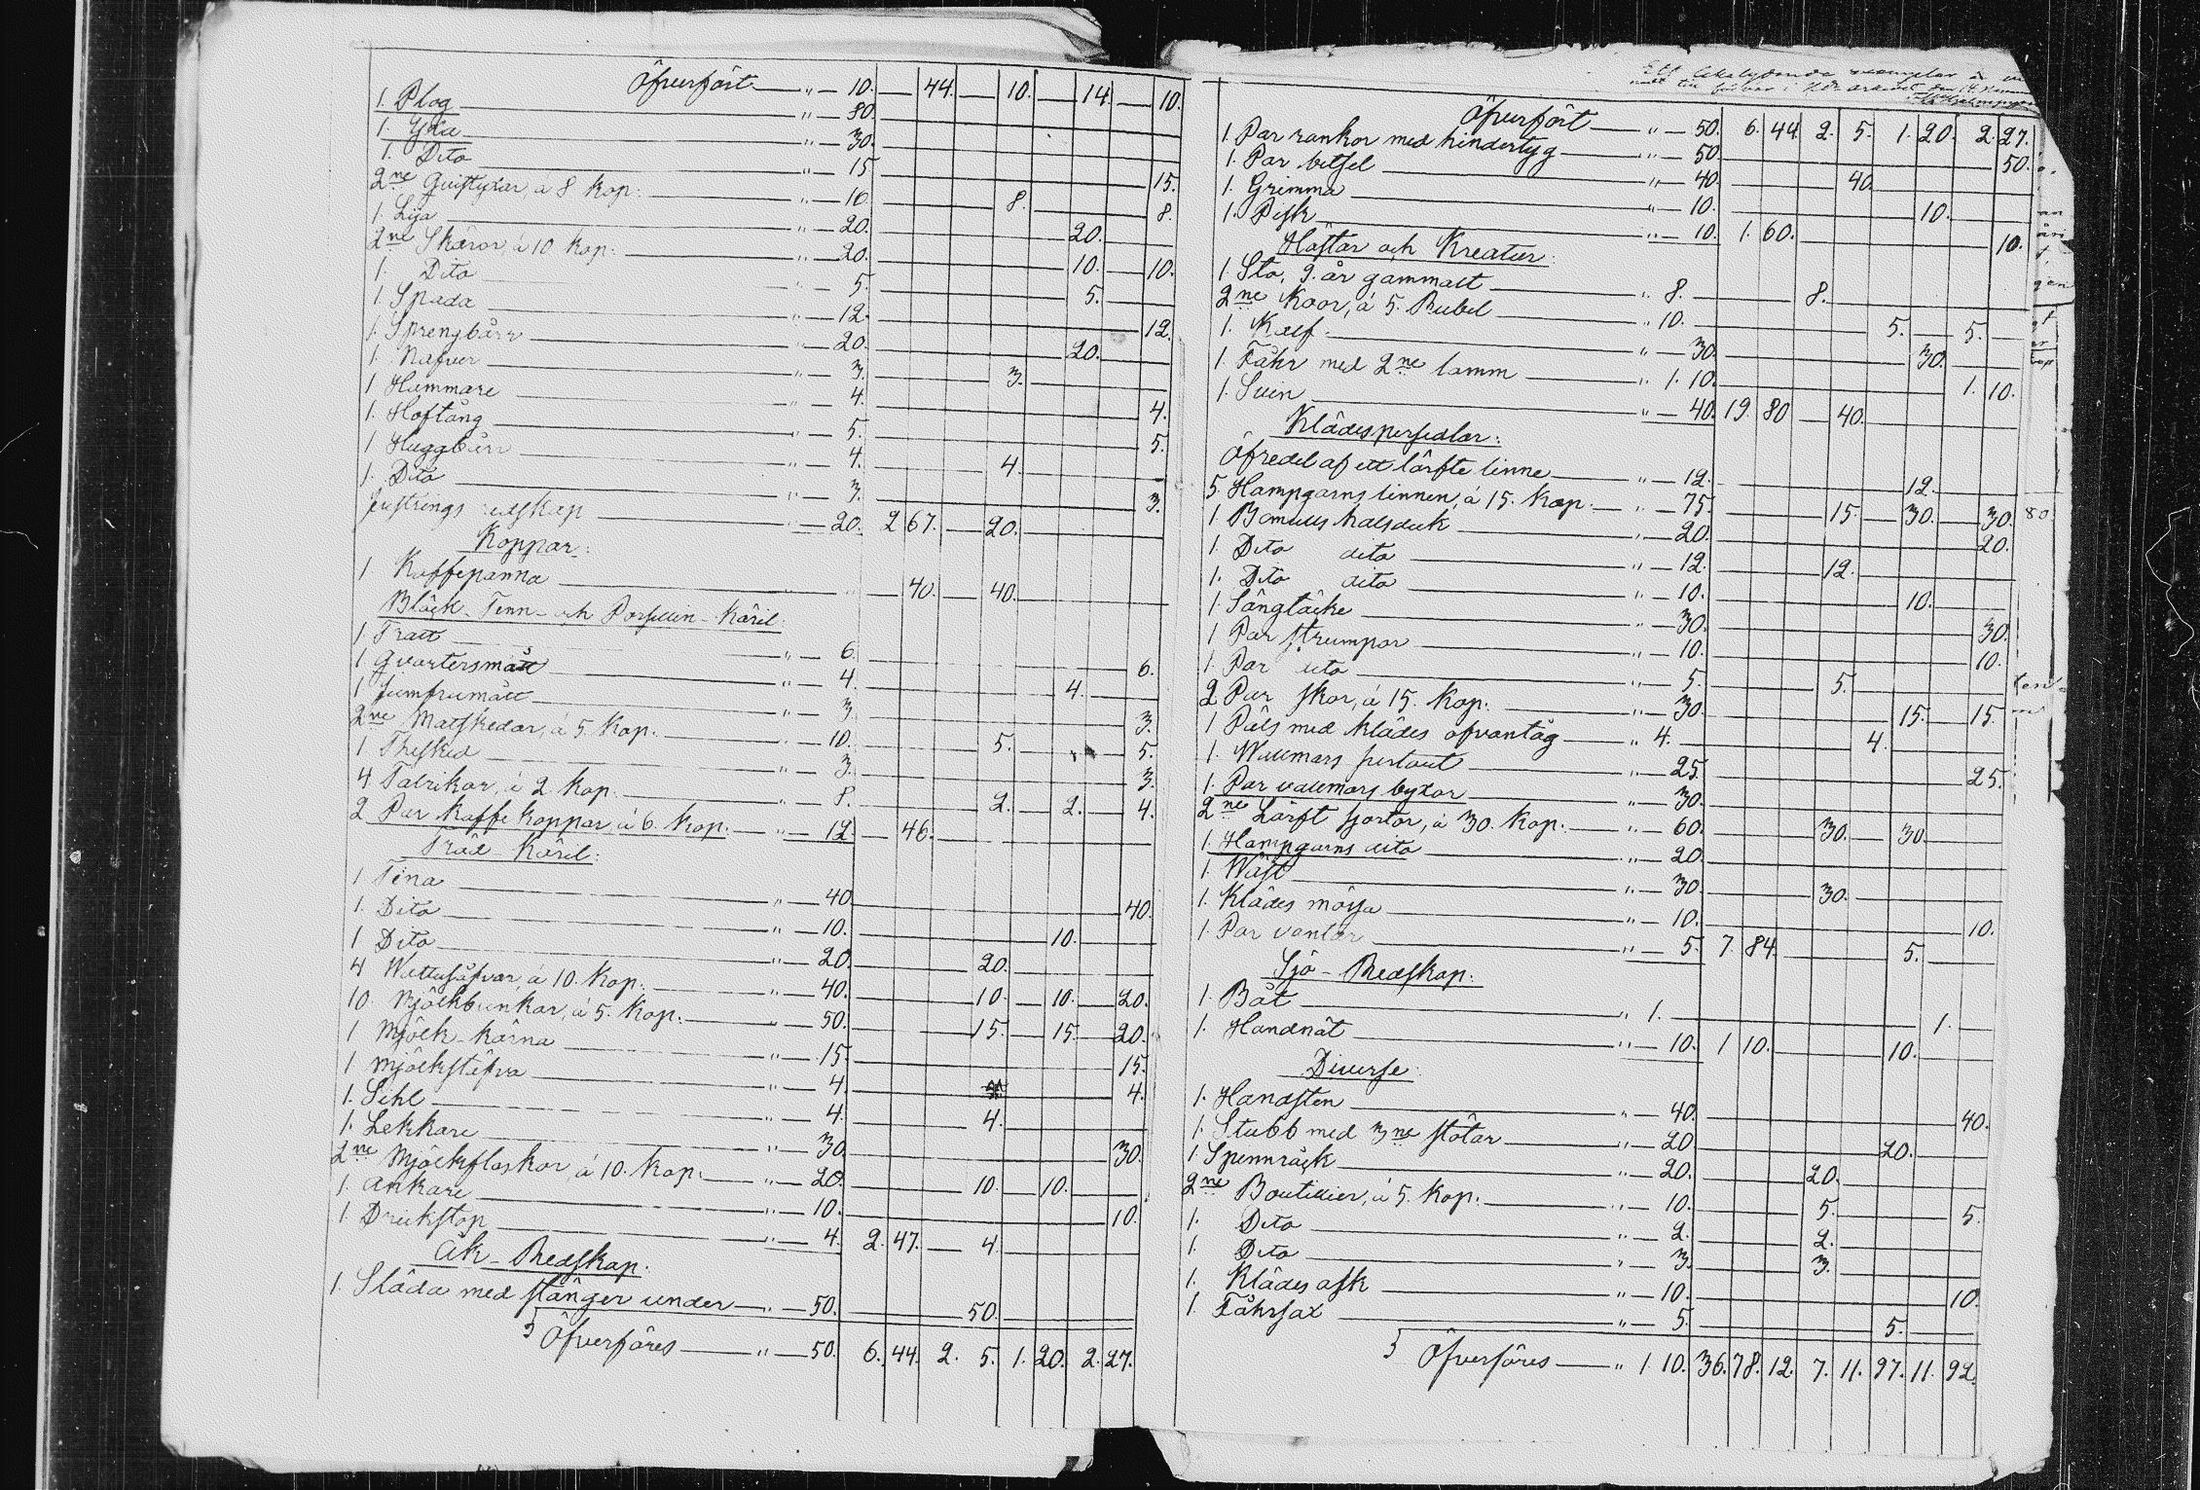 Öfverfört — " — 10. — 44. — 10. — 14 — 10.
1. Plog — " — 80.
1. Yxa — " — 30.
1. Dito — " — 15 — 15.
2ne Qvistyxor, á 8 Kop: — " — 16. — 8. — 8.
1. Lija — " — 20. — 20.
2ne Skäror, á 10 Kop: — " — 20. — 10. — 10.
1. Dito — " — 5. — 5.
1. Spada — " — 12. — 12.
1. Sprengbårr — " — 20. — 20.
1. Nafver — " — 3. — 3.
1 Hammare — " — 4. — 4.
1. Hoftång — " — 5. — 5.
1 Huggbårr — " — 4. — 4.
1. Dito — " — 3. — 3.
redskap — " — 20. 2 67. — 20.
Koppar:
1 Kaffepanna — " — 40. — 40.
Bläck- Tenn- och Porslin- Käril:
1 Tratt — " — 6. — 6.
1 Qvartersmått — " — 4. — 4.
1 Jumfrumått — " — 3. — 3.
2ne Matskedar, á 5. Kop. — " — 10. — 5. — 5.
1 Thesked — " — 3. — 3.
4 Talrikar, á 2 Kop. — " — 8. — 2. — 2. — 4.
2 Par Kaffe Koppar, á 6. Kop. — " — 12 — 46.
Träd Käril:
1 Tina — " — 40 — 40.
1. Dito — " — 10. — 10.
1 Dito — " — 20. — 20.
4 á 10. Kop. — " — 40. — 10. — 10. — 20.
10 Mjölkbunkar, á 5. Kop: — " — 50. — 15. — 15. — 20.
1 Mjölk-Kärna — " — 15. — 15.
1 Mjölkstäfva — " — 4. — 4.
1. Sihl — " — 4. — 4.
1. Lekkare — " — 30. — 30.
2ne Mjölkflaskor, á 10. Kop. — " — 20. — 10. — 10.
1. Ankare — " — 10. — 10.
1. Drickstop — " — 4. 2. 47. — 4.
Åk-Redskap:
1. Släda med stänger under — " — 50. — 50.
Öfverföres — " — 50. 6. 44. 2. 5. 1. 20. 2. 27.
Ett
Öfverfört — " — 50. 6. 44 2. 5. 1. 20. 2. 27.
1. Par rankor med hindertyg — " — 50. — 50.
1. Par betsel — " — 40. — 40.
1. Grimma — " — 10. — 10.
1. Pisk — " — 10. 1. 60. — 10.
Hästar och Kreatur:
1. Sto, 9. år gammalt — " 8. — 8.
2ne Koor, á 5. Rubel — " 10. — 5. — 5.
1. Kalf — " — 30. — 30.
1. Fåhr med 2ne lamm — " 1. 10. — 1. 10.
1. Svin — " — 40. 19. 80 — 40.
Klädespersedlar:
Öfredel af ett lärfts linne — " — 12. — 12.
5. Hampgarns linnen, á 15. Kop. — " — 75. — 15. — 30. — 30.
1. Bomulls halsduk — " — 20. — 20.
1. Dito dito — " — 12. — 12.
1. Dito dito — " — 10. — 10.
1. Sängtäcke — " — 30. — 30.
1 Par strumpor — " — 10. — 10.
1. Par dito — " — 5. — 5.
2 Par skor, á 15. Kop. — " — 30. — 15. — 15.
1 Päls med klädes ofvantåg — " 4. — 4.
1. Wallmars — " — 25. — 25.
1. Par vallmars byxor — " — 30.
2ne Lärft skjortor, á 30. Kop. — " — 60. — 30. — 30.
1. Hampgarns dito — " — 20.
1. Wäst — " — 30. — 30.
1. Klädes mössa — " — 10. — 10.
1. Par vantar — " — 5. 7. 84. — 5.
Sjö-Redskap:
1. Båt — " 1. — 1.
1. Handnät — " — 10. 1 10. — 10.
Diverse:
1. Handsten — " — 40. — 40.
1. Stubb med 3ne stötar — " — 20 — 20.
1 Spennräck — " — 20. — 20.
2ne Boutillier, á 5. Kop. — " — 10. — 5. — 5.
1. Dito — " — 2. — 2.
1. Dito — " — 3. — 3.
1. Klädes ask — " — 10. — 10.
1. Fåhrsax — " — 5. — 5.
Öfverföres — " 1 10. 36. 78. 12. 7. 11. 97. 11. 92.